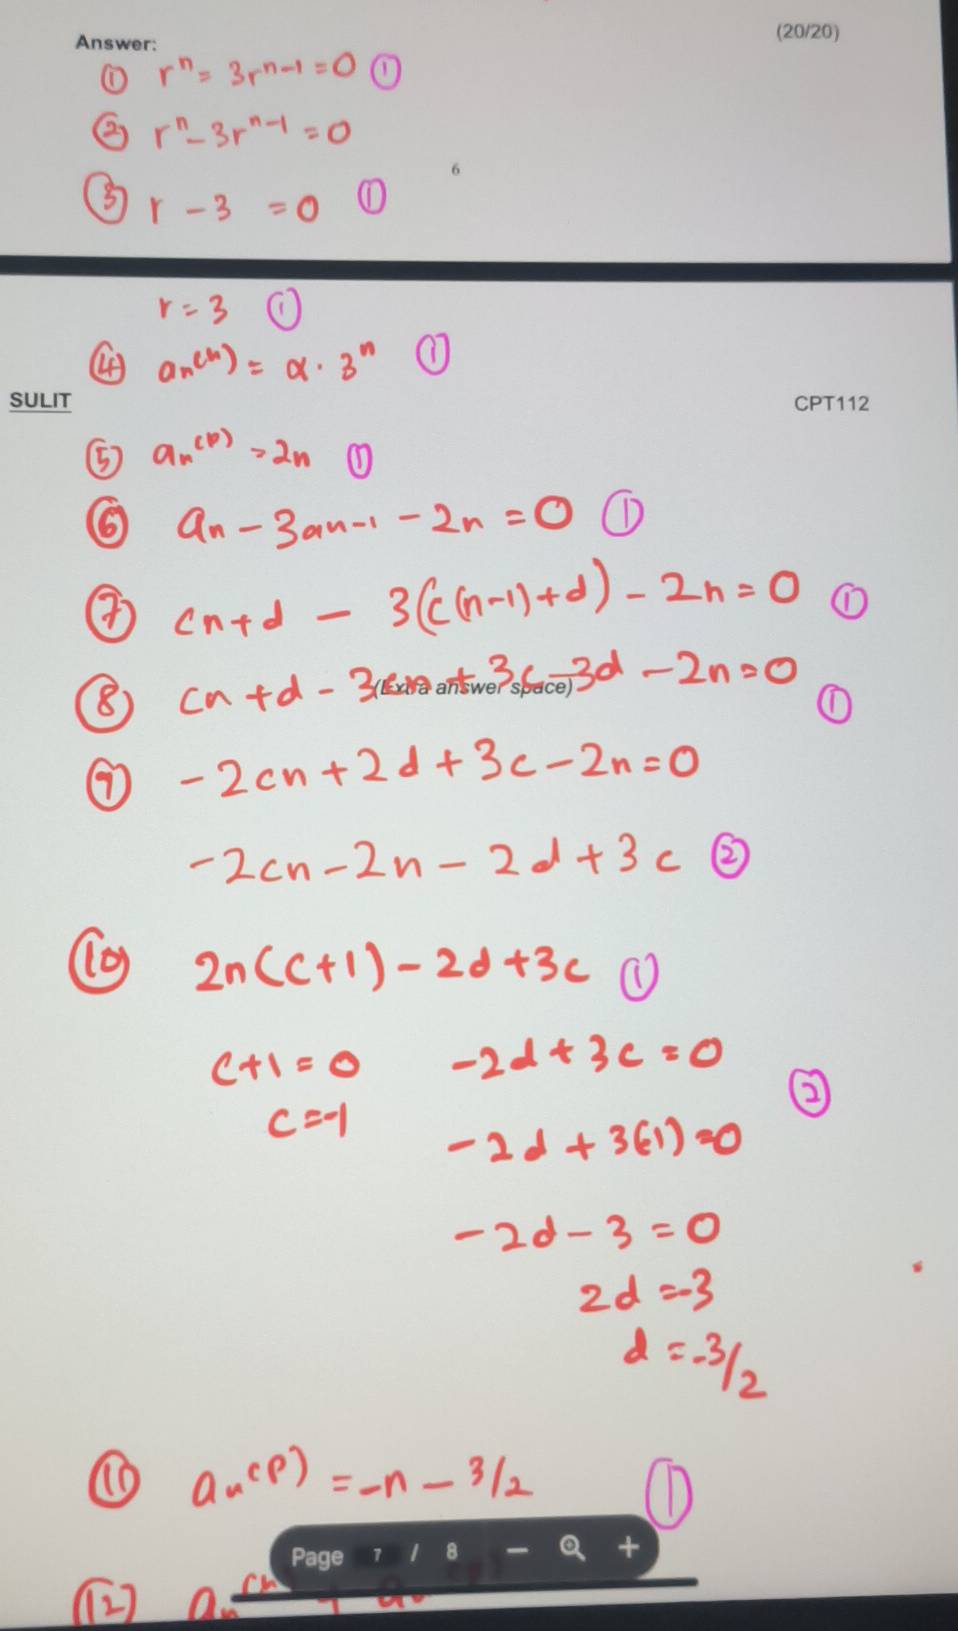 Answer:
(20/20)
① rⁿ = 3rⁿ⁻¹ = 0 ①
② rⁿ - 3rⁿ⁻¹ = 0
6
③ r - 3 = 0 ①
r = 3 ①
④ an⁽ʰ⁾ = α · 3ⁿ ①
SULIT
CPT112
⑤ an⁽ᵖ⁾ = 2n ①
⑥ an - 3an-1 - 2n = 0 ①
⑦ cn + d - 3(c(n-1)+d) - 2n = 0 ①
⑧ cn + d - 3cn + 3c - 3d - 2n = 0 ①
(Extra answer space)
⑨ -2cn + 2d + 3c - 2n = 0
-2cn - 2n - 2d + 3c ②
⑩ 2n(c+1) - 2d + 3c ①
c+1 = 0 -2d + 3c = 0 ②
c = -1 -2d + 3(-1) = 0
-2d - 3 = 0
2d = -3
d = -3/2
⑪ an⁽ᵖ⁾ = -n - 3/2 ①
Page 7 / 8 - +
⑫ an